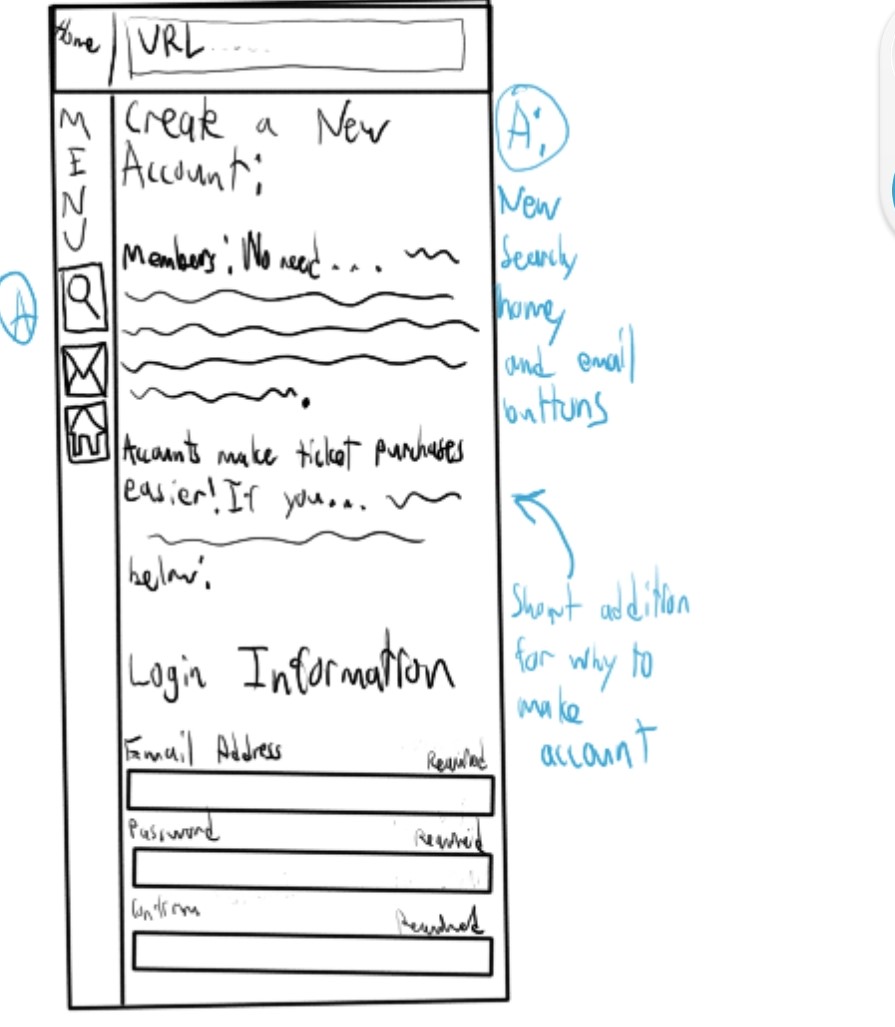 Home
URL.....
MENU
Create a New
Account:
Members: No need....
Accounts make ticket purchases
easier! If you...
below:
Login Information
Email Address
Required
Password
Required
Confirm
Required
A
A:
New
Search
home,
and email
buttons
Short addition
for why to
make
account